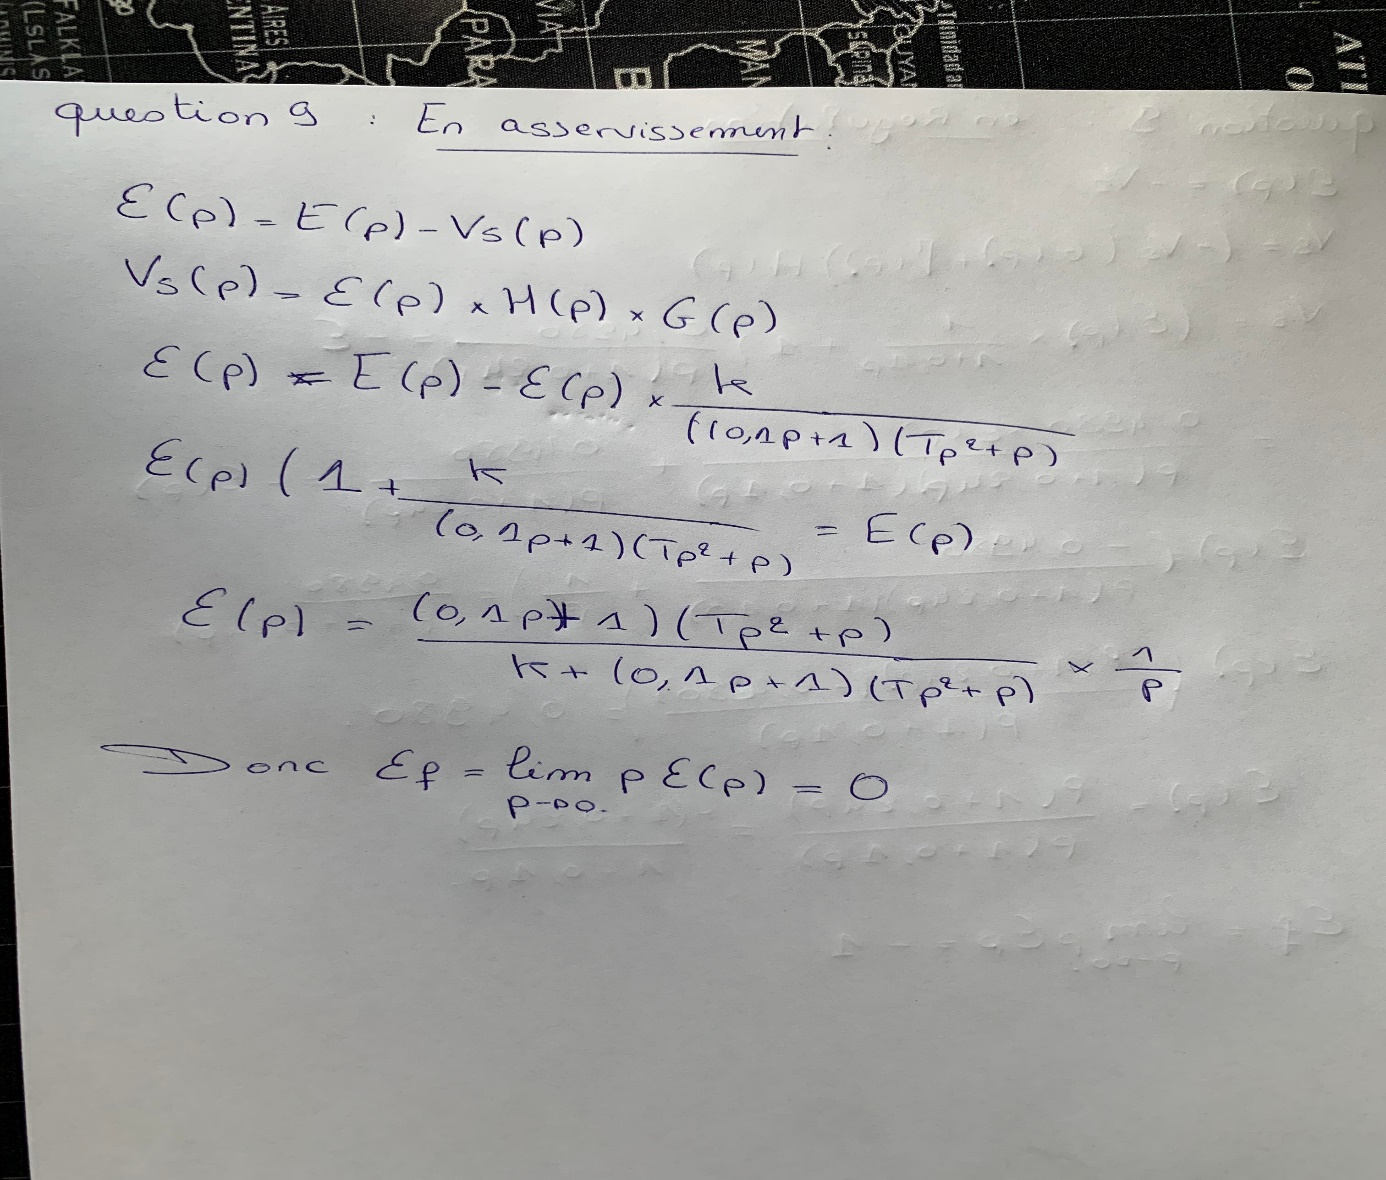 FALKLA
(ISLAS
AIRES
ENTINA
PARA
VIA
B
MAN
ATL
O
question 9 : En asservissement.
Ɛ(p) = E(p) - Vs(p)
Vs(p) = Ɛ(p) × H(p) × G(p)
Ɛ(p) = E(p) - Ɛ(p) × k / ((0,1p+1)(Tp²+p)
Ɛ(p) (1 + K / (0,1p+1)(Tp²+p) = E(p)
Ɛ(p) = (0,1p+1)(Tp²+p) / K+(0,1p+1)(Tp²+p) × 1/p
Donc Ɛf = lim p→0. pƐ(p) = 0